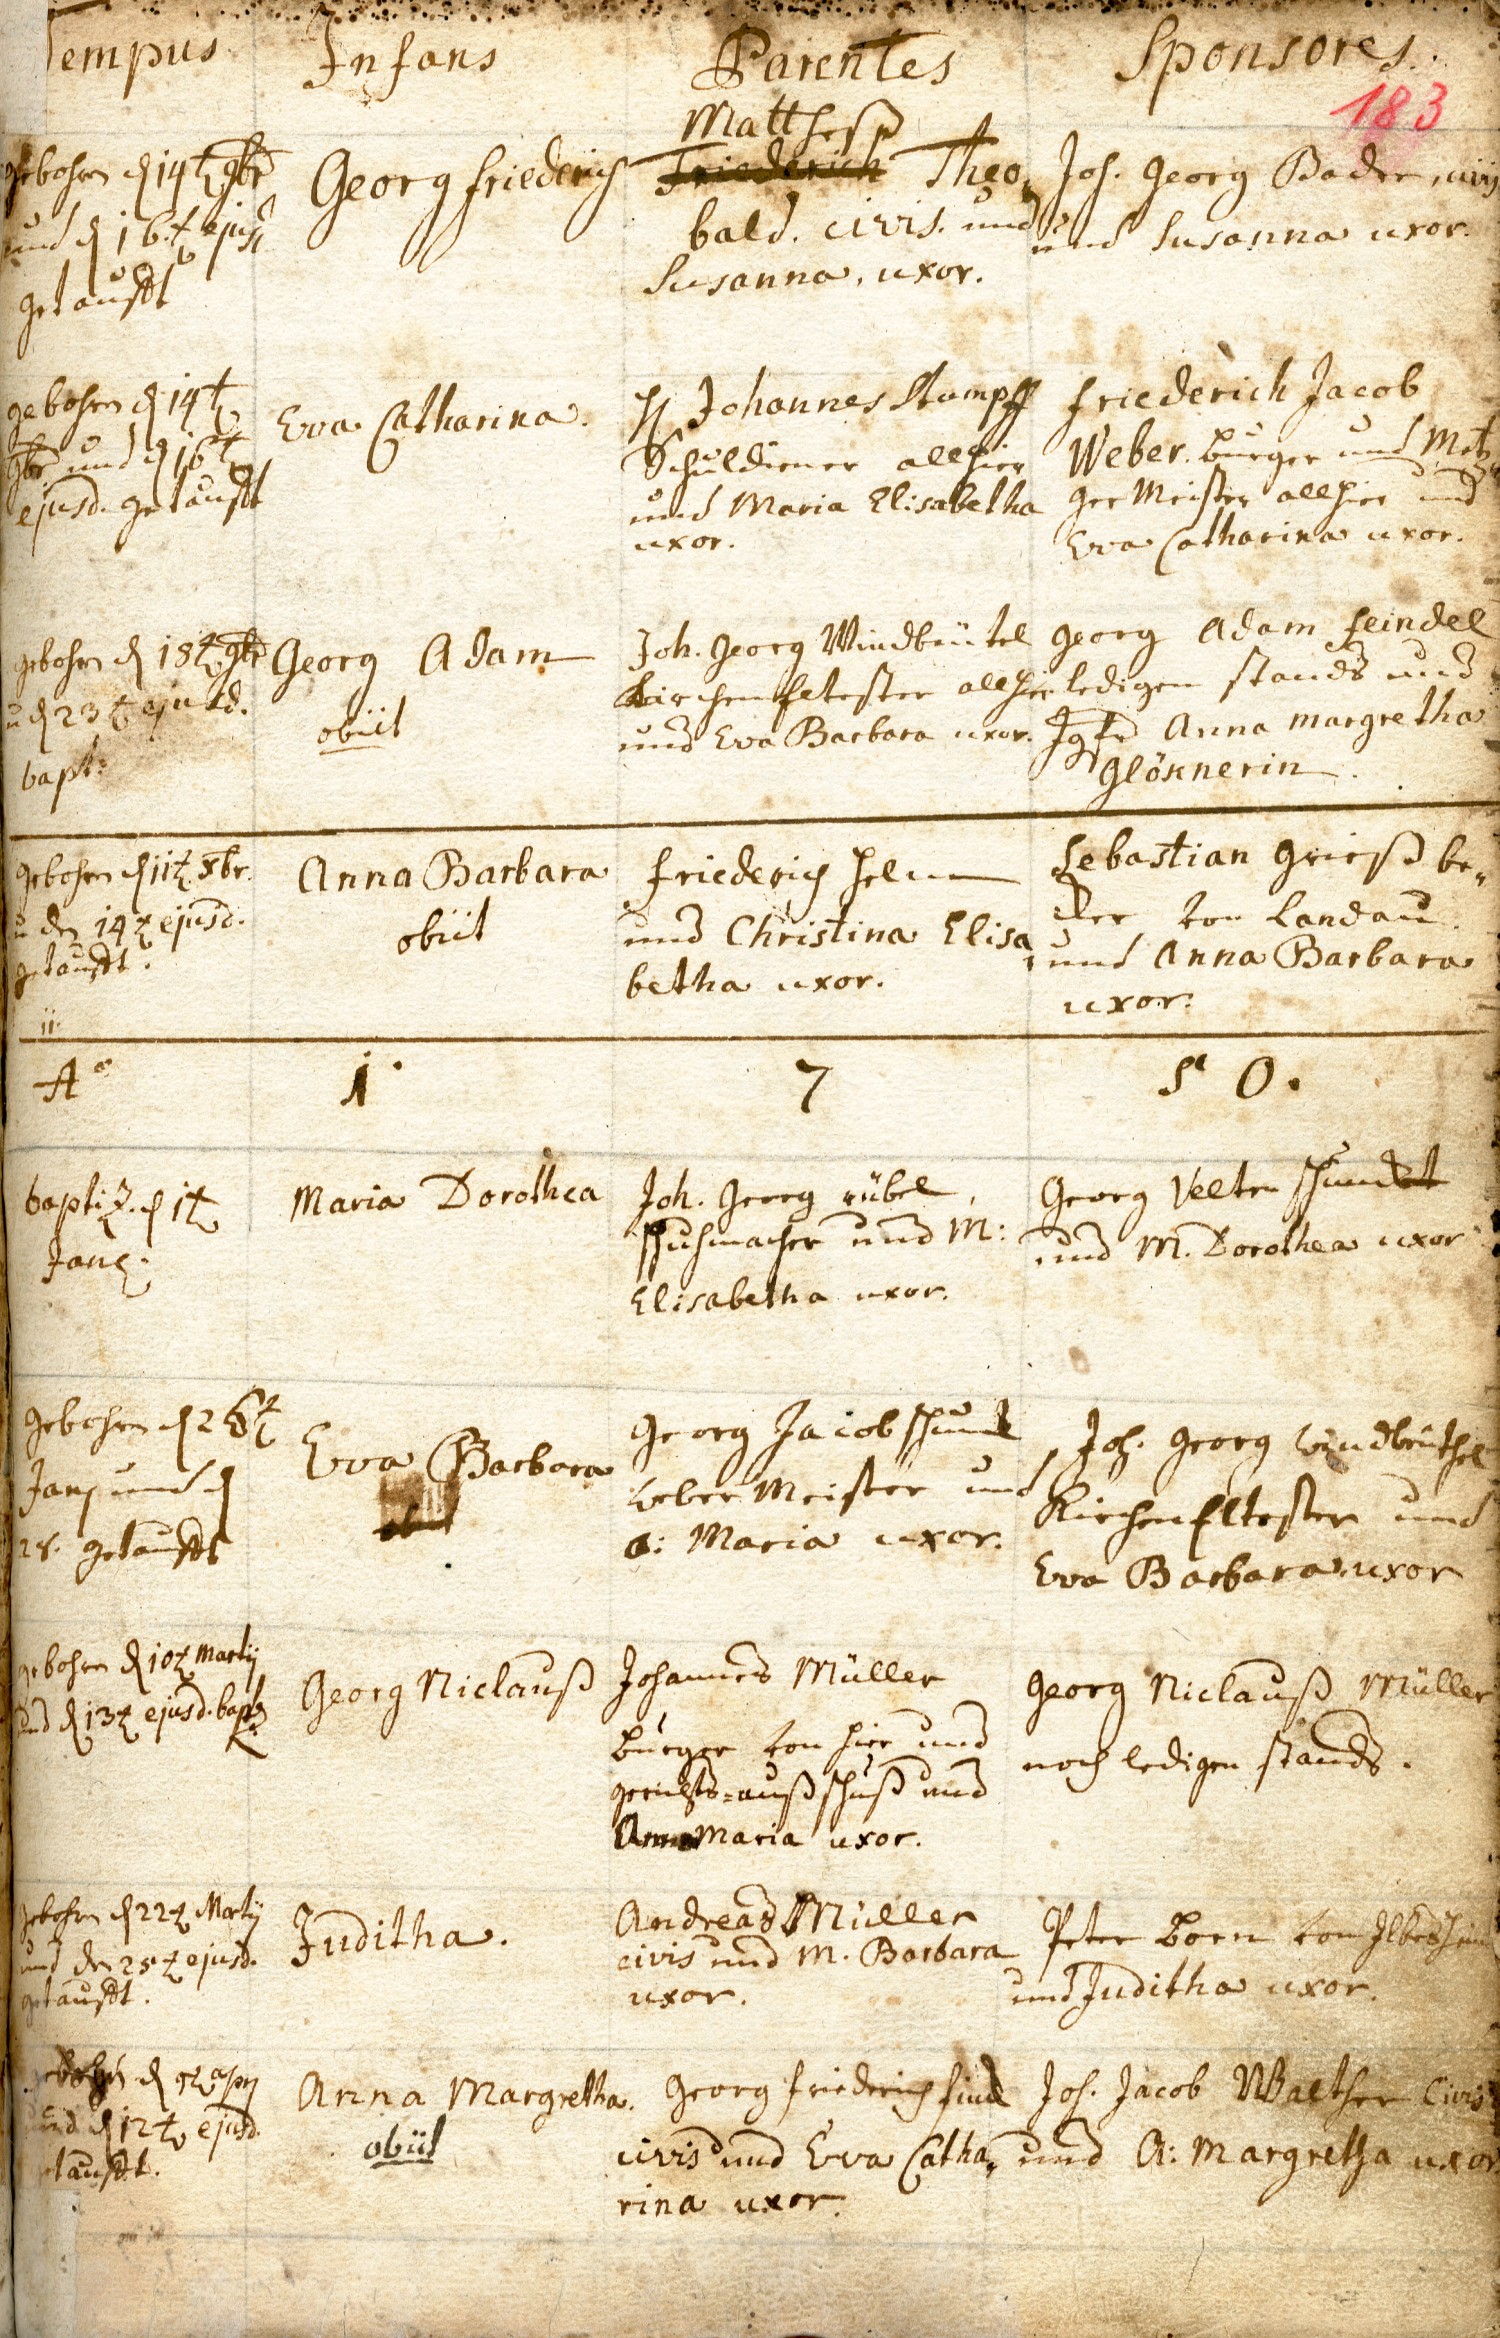 Tempus Infans Parentes Sponsores.
183
gebohren d 14t 9br
und d 16.t ejusd
getaufft
Georg Friederich
Matthes
Friederich Theo,
bald. civis. und
Susanna, uxor.
Joh. Georg Bader, civis
und Susanna uxor.
gebohren d 14t
9br und d 16t
ejusd. getaufft
Eva Catharina.
H Johannes Stumpff
Schuldiener allhier
und Maria Elisabetha
uxor.
Friederich Jacob
Weber. burger und Metz,
ger Meister allhier und
Eva Catharina uxor.
gebohren d 18t 9br
u d 23t ejusd.
bapt:
Georg Adam
obiit
Joh. Georg Windbeütel
Kirchen Eltester allhier
und Eva Barbara uxor.
Georg Adam Feindel
ledigen stands und
Jgfr Anna Margretha
Glöknerin.
gebohren d 11t xbr.
u den 14t ejusd.
getaufft.
11.
Anna Barbara
obiit
Friederich Helm
und Christina Elisa,
betha uxor.
Sebastian Grieß be,
cker von Landau
und Anna Barbara
uxor.
Ao 1. 7 5 0.
baptiz. d 1t
Jany.
Maria Dorothea
Joh. Georg rübel,
schuhmacher und M:
Elisabetha uxor.
Georg Velten schundt
und M. Dorothea uxor
gebohren d 26t
Jany und d
28. getaufft
Eva Barbara
Georg Jacob schund
weber Meister und
a: Maria uxor.
Joh. Georg windbeüthel
Kirchen Eltester und
Eva Barbara uxor
gebohren d 10t Martij
und d 13t ejusd. bapt
Georg Niclauß
Johannes Müller
burger von hier und
gerichts=außschuß und
Anna Maria uxor.
Georg Niclauß Müller
noch ledigen stands.
gebohren d 22t Martij
und den 25t ejusd.
getaufft.
Juditha.
Andreas Müller
civis und M. Barbara
uxor.
Peter Born von Ilbesheim
und Juditha uxor.
gebohren d 9t apr
und d 12t ejusd.
getaufft.
Anna Margretha.
obiit
Georg Friederich
civis und Eva Catha,
rina uxor.
Joh. Jacob Walther Civis
und A: Margretha uxor